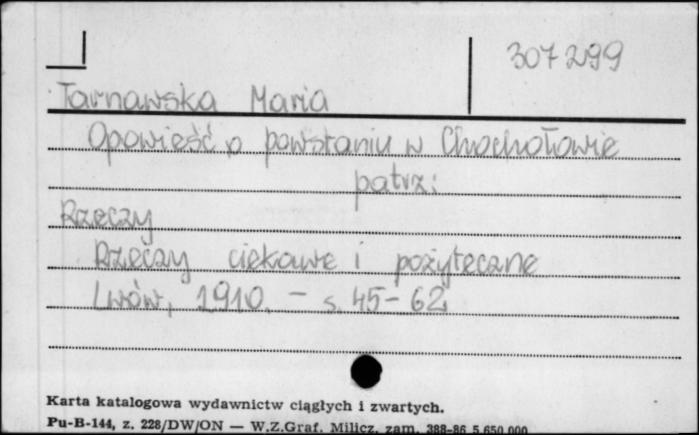 307299
Tarnawska Maria
Opowieść o powstaniu w Chochołowie
patrz:
Rzeczy
Rzeczy ciekawe i pożyteczne
Lwów, 1910. - s. 45-62
Karta katalogowa wydawnictw ciągłych i zwartych.
Pu-B-144, z. 228/DW/ON — W.Z.Graf. Milicz. zam. 388-86 5.650.000